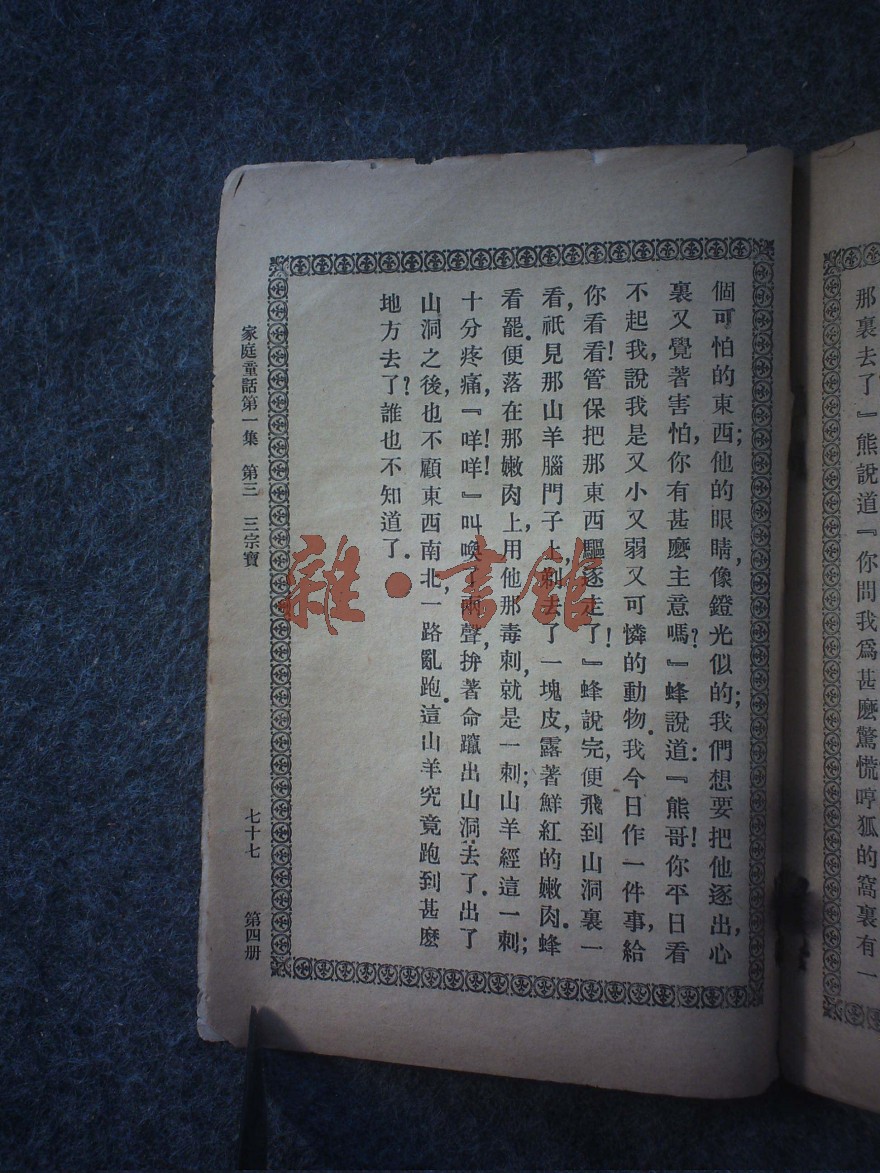 那裏去了』熊說道『你問我爲甚麽驚慌哼狐的窩裏有一
個可怕的東西；他的眼睛，像鐙光似的；我們想要把他逐出，心
裏又覺著害怕，你有甚麽主意嗎？』蜂說道：『熊哥！你平日看
不起我，說我是又小又弱又可憐的動物．我今日作一件事，給
你看看！管保把那東西驅逐走了！』蜂說完，便飛到山洞裏一
看，祇見那山羊腦門子上，刺去了一塊皮，露著鮮紅的嫩肉．蜂
看罷．便落在那嫩肉上，用他那毒刺，就是一刺；山羊經這一刺；
十分疼痛，『咩！咩！』叫喚了兩聲，拚著命躥出山洞去了．出了
山洞之後，也不顧東西南北，一路亂跑．這山羊究竟跑到甚麽
地方去了？誰也不知道了．
家庭童話第一集　第三　三宗寶　七十七　第四册
雜·書館